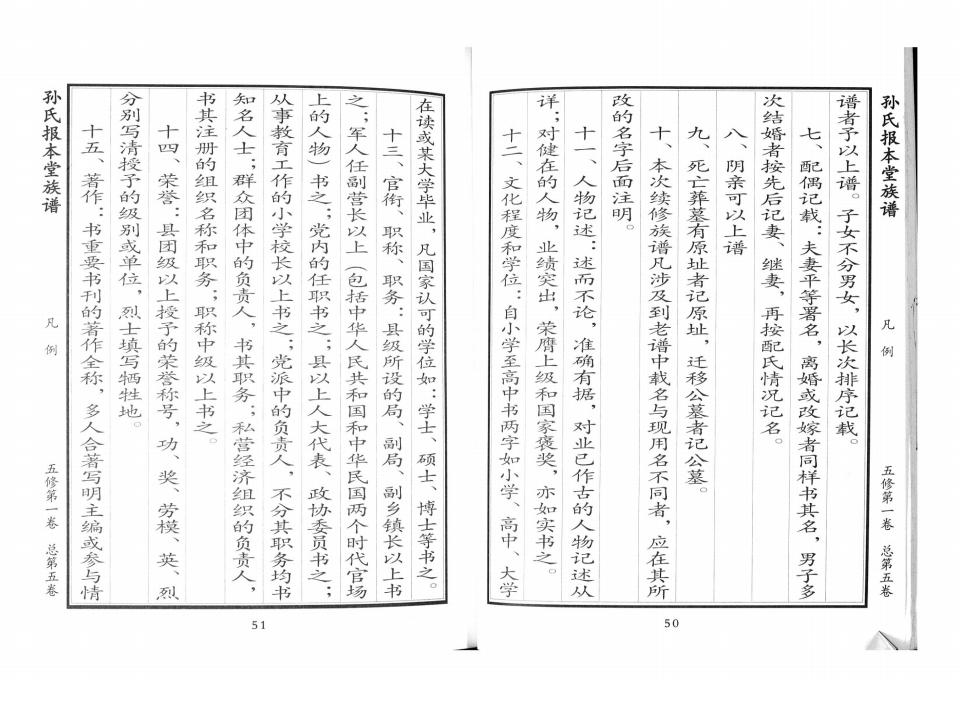 孙氏报本堂族谱
凡例
五修第一卷 总第五卷
谱者予以上谱。子女不分男女，以长次排序记载。
七、配偶记载：夫妻平等署名，离婚或改嫁者同样书其名，男子多
次结婚者按先后记妻、继妻，再按配氏情况记名。
八、阴亲可以上谱
九、死亡葬墓有原址者记原址，迁移公墓者记公墓。
十、本次续修族谱凡涉及到老谱中载名与现用名不同者，应在其所
改的名字后面注明。
十一、人物记述：述而不论，准确有据，对业已作古的人物记述从
详；对健在的人物，业绩突出，荣膺上级和国家褒奖，亦如实书之。
十二、文化程度和学位：自小学至高中书两字如小学、高中、大学
50
在读或某大学毕业，凡国家认可的学位如：学士、硕士、博士等书之。
十三、官衔、职称、职务：县级所设的局、副局、副乡镇长以上书
之；军人任副营长以上（包括中华人民共和国和中华民国两个时代官场
上的人物）书之；党内的任职书之；县以上人大代表、政协委员书之；
从事教育工作的小学校长以上书之；党派中的负责人，不分其职务均书
知名人士；群众团体中的负责人，书其职务；私营经济组织的负责人，
书其注册的组织名称和职务；职称中级以上书之。
十四、荣誉：县团级以上授予的荣誉称号，功、奖、劳模、英、烈
分别写清授予的级别或单位，烈士填写牺牲地。
十五、著作：书重要书刊的著作全称，多人合著写明主编或参与情
孙氏报本堂族谱
凡例
五修第一卷 总第五卷
51